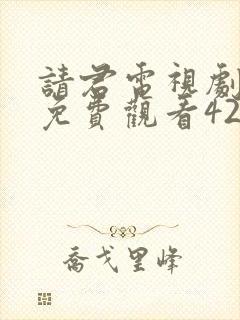 請君電視劇
免費觀看42
喬戈里峰